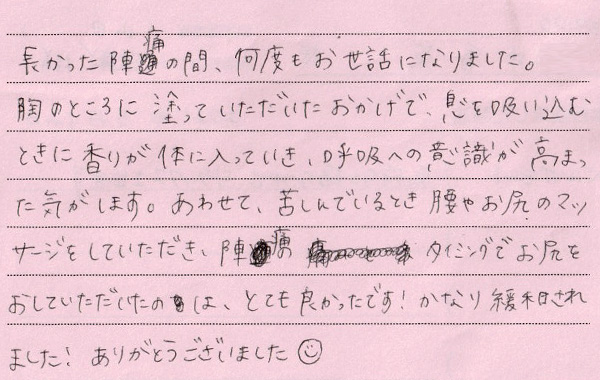 長かった陣痛の間、何度もお世話になりました。
胸のところに塗っていただいたおかげで、息を吸い込む
ときに香りが体に入っていき、呼吸への意識が高まっ
た気がします。あわせて、苦しんでいるとき腰やお尻のマッ
サージをしていただき、陣痛のタイミングでお尻を
おしていただいたのは、とても良かったです！かなり緩和され
ました！ありがとうございました☺